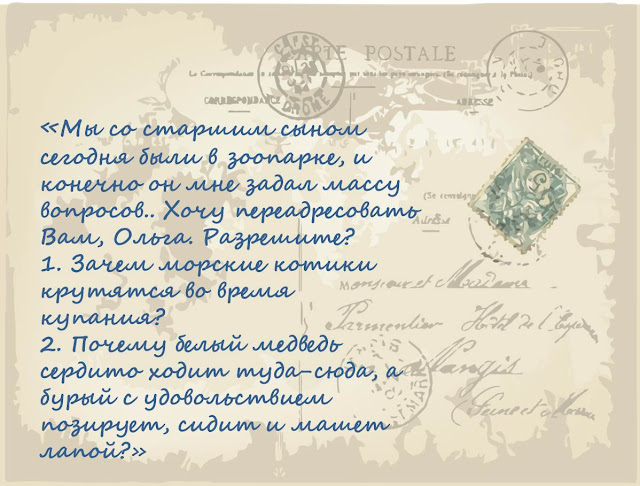 CARTE POSTALE
CORRESPONDANCE
ADRESSE
DROME
«Мы со старшим сыном
сегодня были в зоопарке, и
конечно он мне задал массу
вопросов.. Хочу переадресовать
Вам, Ольга. Разрешите?
1. Зачем морские котики
крутятся во время
купания?
2. Почему белый медведь
сердито ходит туда-сюда, а
бурый с удовольствием
позирует, сидит и машет
лапой?»
Monsieur et Madame
Parmentier Hôtel de l'